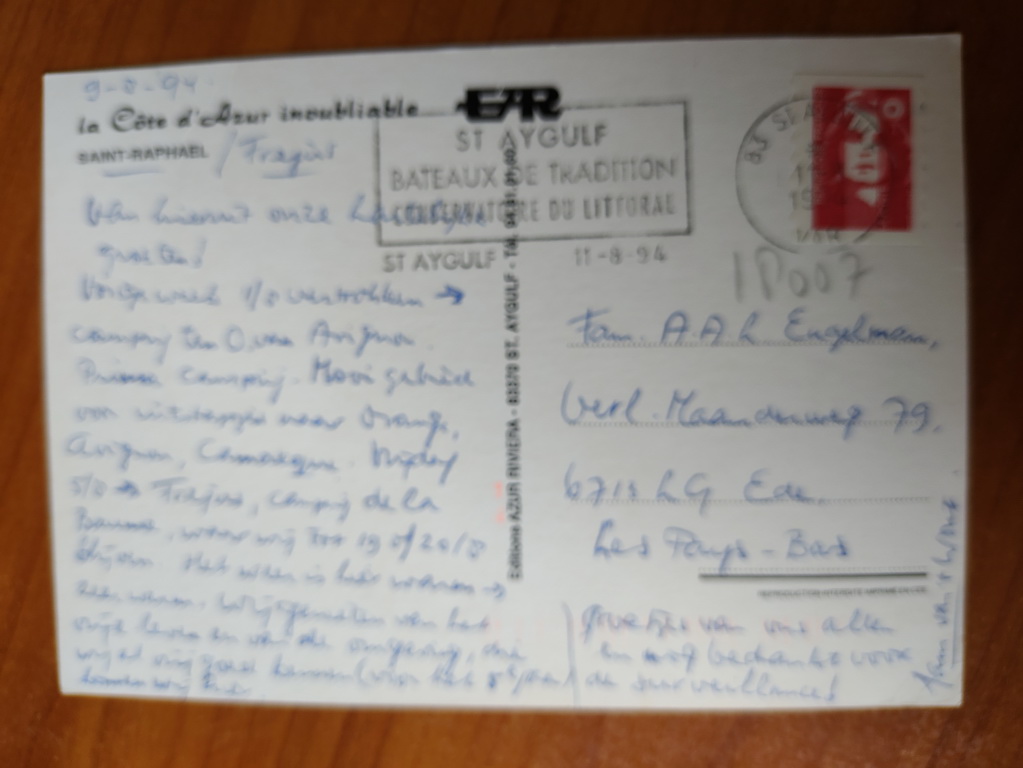 9-8-94.
la Côte d'Azur inoubliable
SAINT-RAPHAËL / Fréjus
EAR
ST AYGULF
BATEAUX DE TRADITION
CONSERVATOIRE DU LITTORAL
ST AYGULF 11-8-94
83 ST AYGULF
VAR
1P007
Van hieruit onze hartelijke
groeten!
Vorige week 1/8 vertrokken →
camping ten O. van Avignon.
Prima camping. Mooi gebied
van uitstapjes naar Orange,
Avignon, Camargue. Vrijdag
5/8 → Fréjus, camping de la
Baume, waar wij tot 19/8 of 20/8
blijven. Het weer is hier warm →
zeer warm. Wij genieten van het
vrije leven en van de omgeving, die
wij al vrij goed kennen (voor het 8e jaar
komen wij hier
Editions AZUR RIVIERA - 83370 ST. AYGULF - Tél.
Fam. A.A.L. Engelman,
Verl. Maanderweg 79.
6713 LG Ede.
Les Pays-Bas
REPRODUCTION INTERDITE
Groetjes van ons allen
en nog bedankt voor
de surveillance!